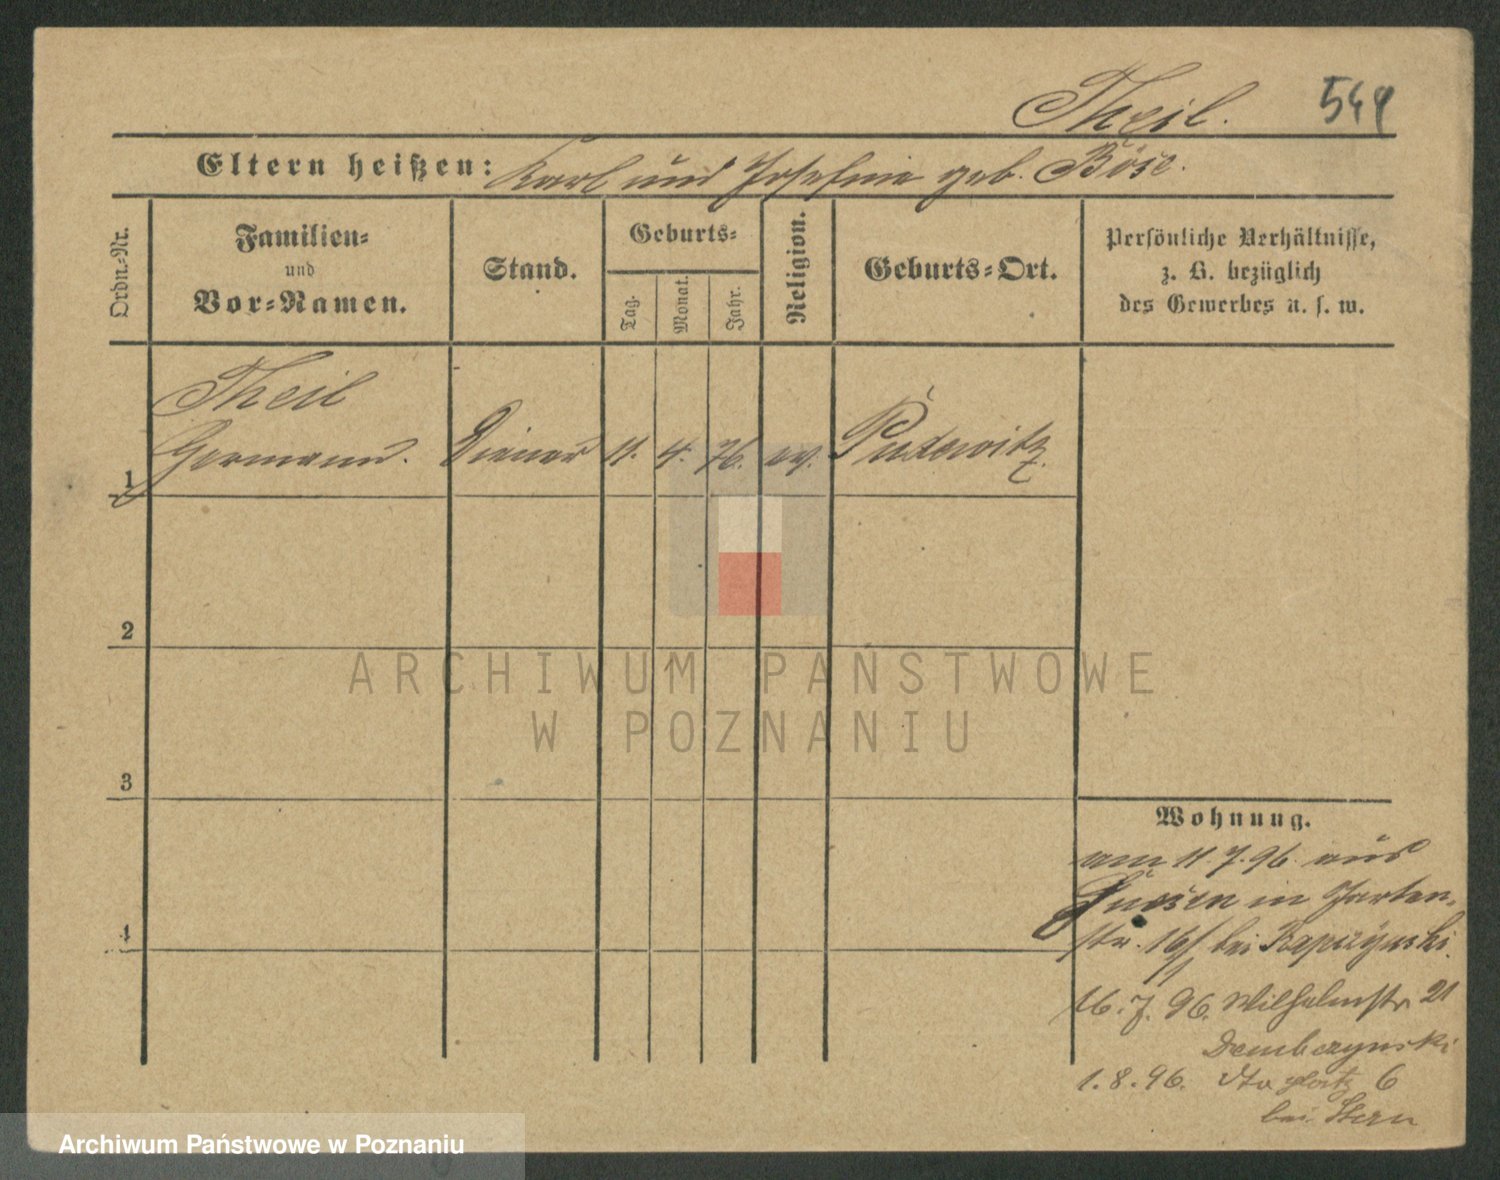 Theil.
549
Eltern heißen: Karl und Josefine geb. Böse.
Ordn.-Nr.
Familien-
und
Vor-Namen.
Stand.
Geburts-
Tag.
Monat.
Jahr.
Religion.
Geburts-Ort.
Persönliche Verhältnisse,
z. B. bezüglich
des Gewerbes u. s. w.
1
Theil
Hermann.
Diener
11.
4.
76.
ev.
Pudewitz.
2
3
4
ARCHIWUM PAŃSTWOWE
W POZNANIU
Wohnung.
am 11.7.96. aus
Gnesen in Garten-
str. 16/ bei
16.7.96. Wilhelmstr 21
Dembczynski
1.8.96. 6
bei Stern
Archiwum Państwowe w Poznaniu